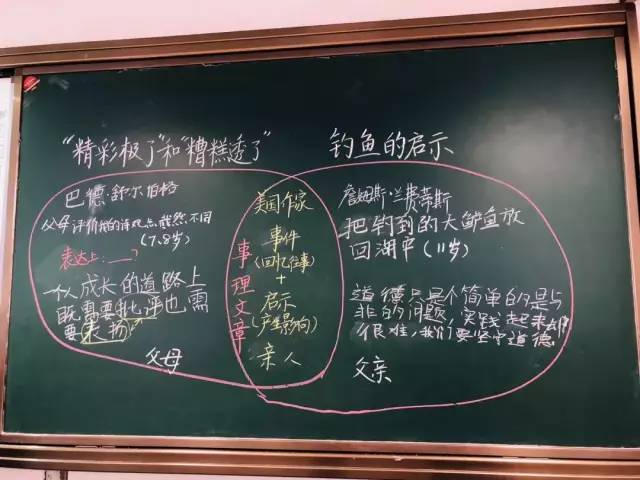 “精彩极了”和“糟糕透了”
钓鱼的启示
巴德·舒尔伯格
父母评价我的诗观点截然不同
(7、8岁)
表达上:___?
一个人成长的道路上
既需要批评也需
要表扬
父母
事理文章
美国作家
事件
(回忆往事)
+
启示
(产生影响)
亲人
詹姆斯·兰费蒂斯
把钓到的大鲈鱼放
回湖中(11岁)
道德只是个简单的是与
非的问题,实践起来却
很难,我们要坚守道德
父亲